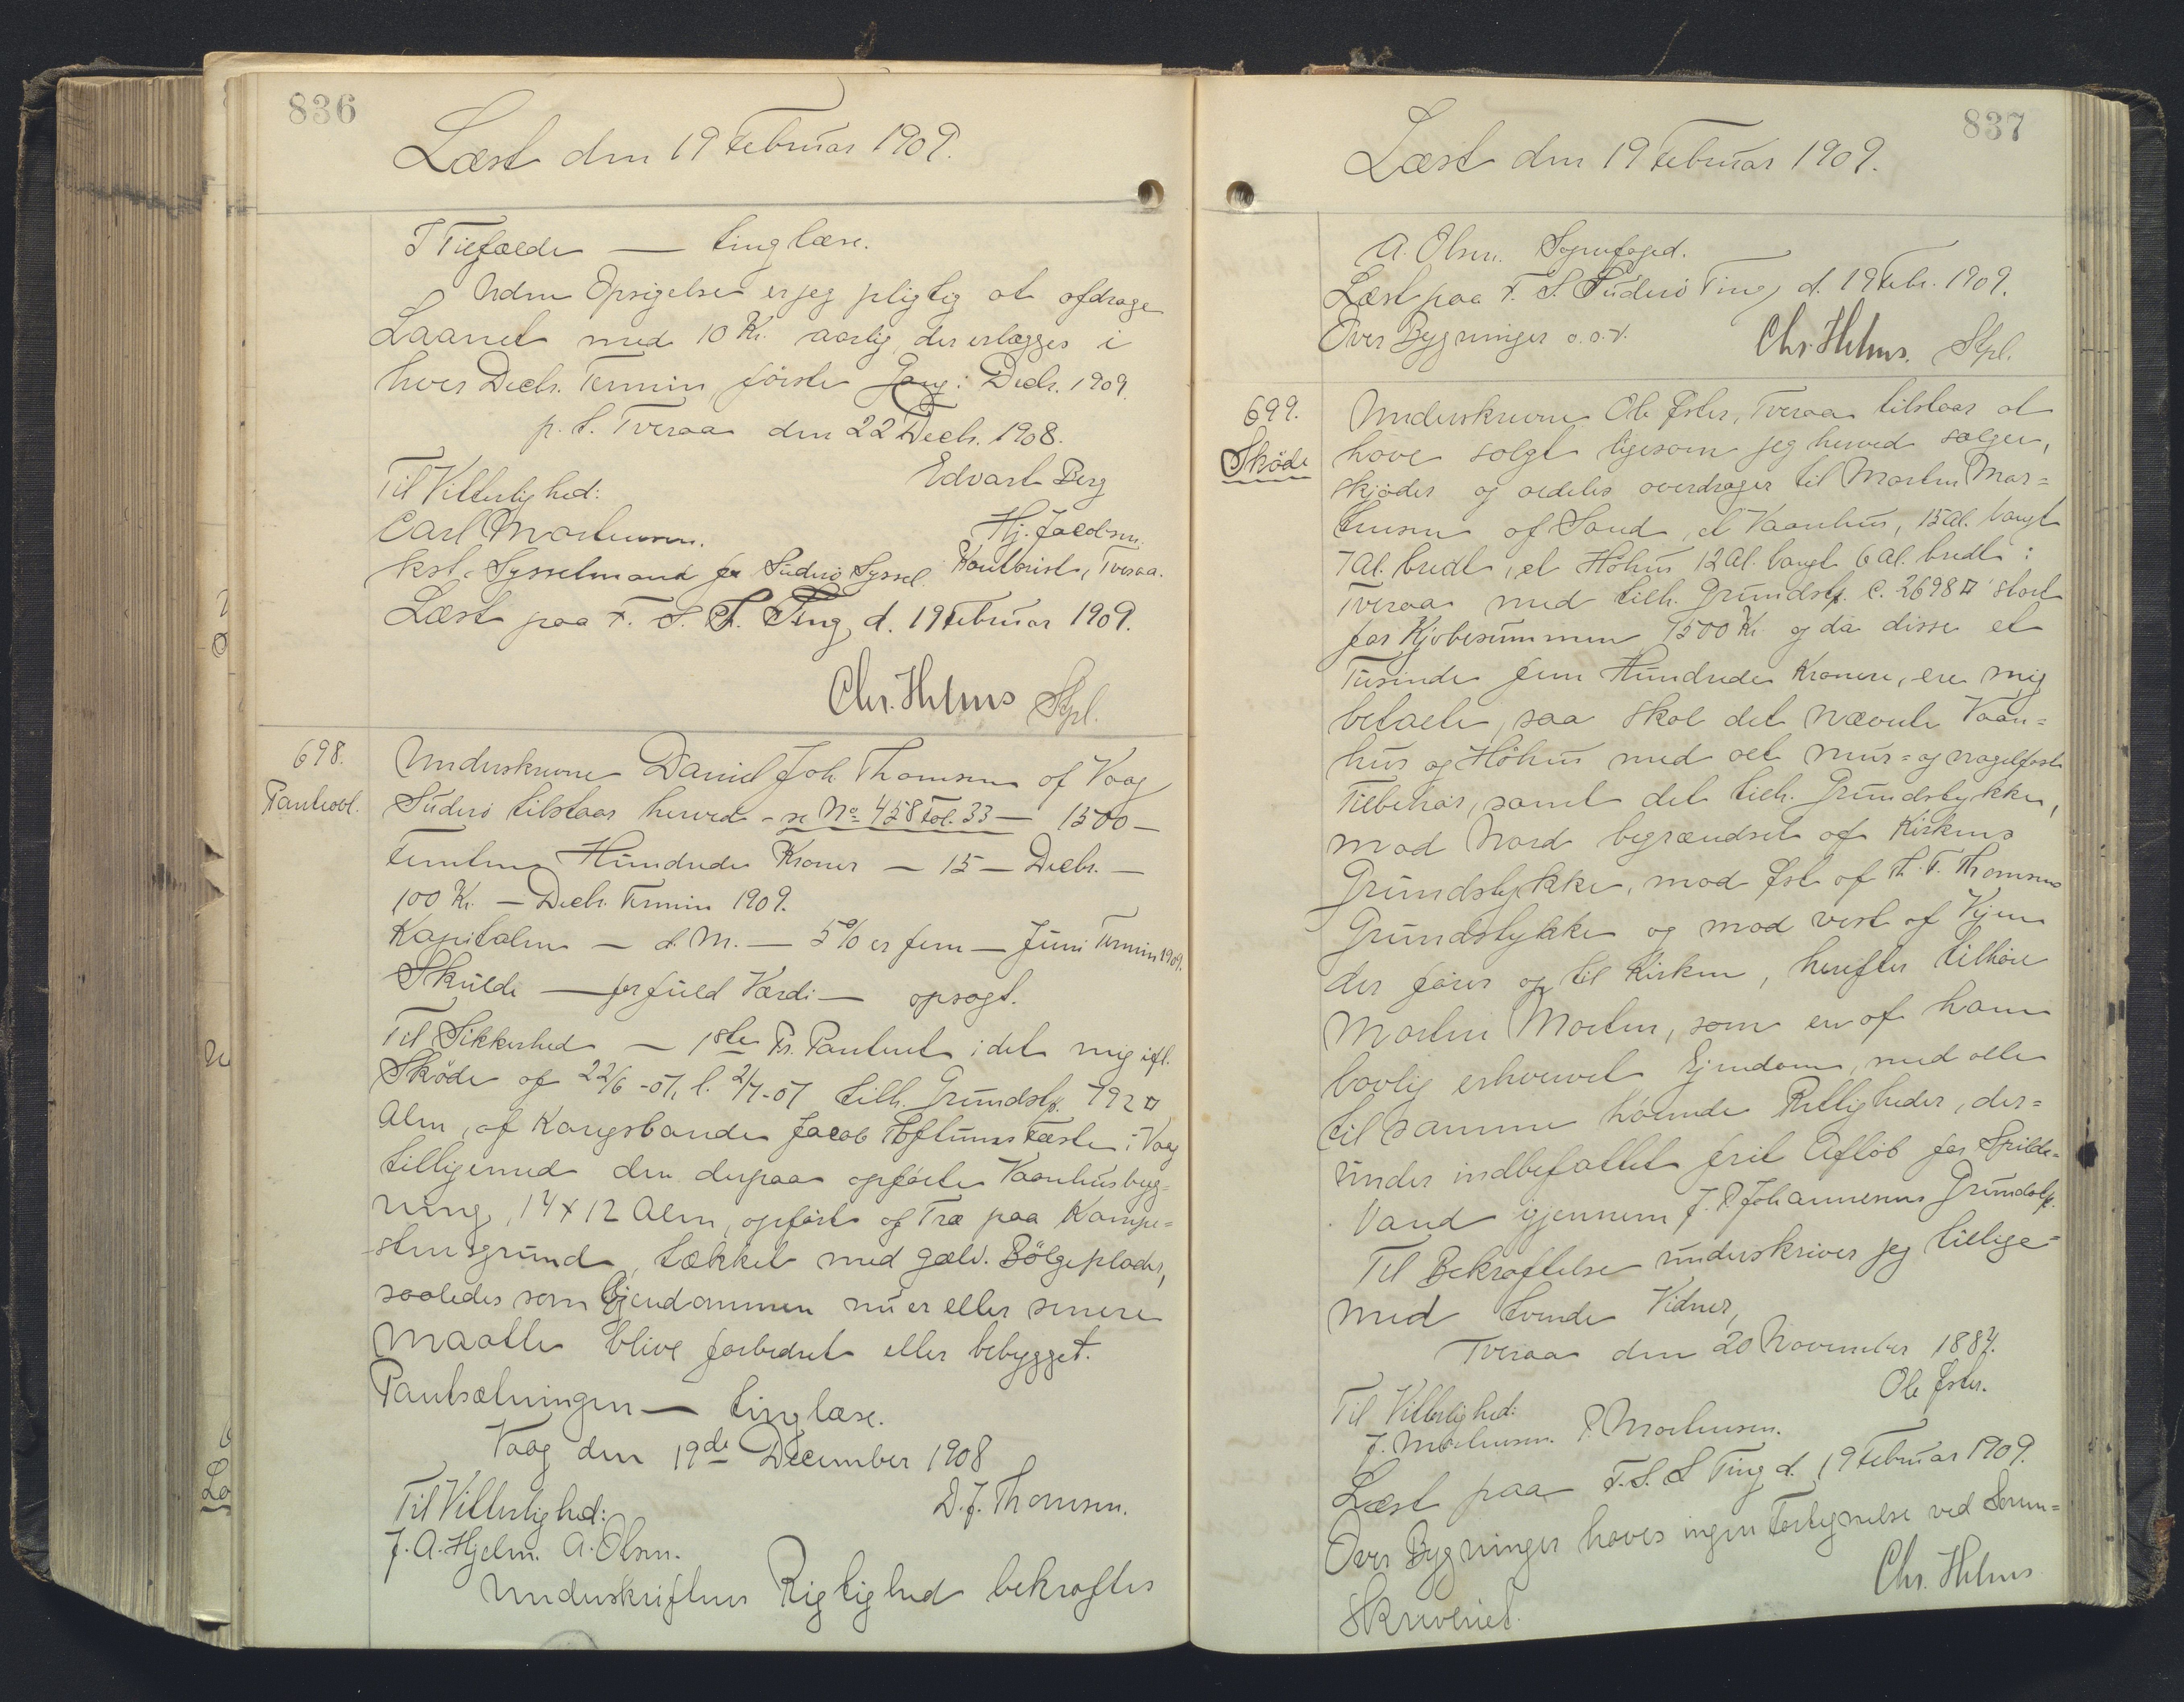 836
Læst den 19 Februar 1909.
I Tilfælde — tinglæse.
Uden Opsigelse er jeg pligtig at afdrage
Laanet med 10 Kr. aarlig, der erlægges i
hver Decbr. Termin, første Gang i Decbr. 1909.
p. t. Tveraa den 22 Decb. 1908.
Edvart Berg
Til Vitterlighed:
Carl Mortensen.
Hj. Jacobsen.
kst. Sysselmand for Suderø Syssel.
Kontorist, Tveraa.
Læst paa F. S. S. Ting, d. 19 Februar 1909.
Chr. Helms Stpl.
698.
Panteobl.
Underskrevne Daniel Joh. Thomsen af Vaag
Suderø tilstaar herved - se No. 458 Fol. 33 — 1500 —
Femten Hundrede Kroner — 15 — Decbr. —
100 Kr. — Decbr. Termin 1909.
Kapitalen — d. M. — 5% er fem — Juni Termin 1909.
Skulde — for fuld Værdi — opsagt.
Til Sikkerhed — 1ste Pr. Panteret i det mig ifl.
Skøde af 22/6 -07, l. 2/7-07 tilh. Grundstk. 792 □
Alen, af Kongsbonde Jacob Toftums Fæste i Vaag
tilligemed den derpaa opførte Vaanhusbyg=
ning, 14 x 12 Alen, opført af Træ paa Kampe=
stensgrund, tækket med galv. Bølgeplader,
saaledes som Ejendommen nu er eller senere
maatte blive forbedret eller bebygget.
Pantsætningen — tinglæse.
Vaag den 19de December 1908
D. J. Thomsen.
Til Vitterlighed:
J. A. Hjelm. A. Olsen.
Underskriftens Rigtighed bekræftes
837
Læst den 19 Februar 1909.
A. Olsen. Sognefoged.
Læst paa F. S. Suderø Ting, d. 19 Febr. 1909.
Over Bygninger o. s. v.
Chr. Helms. Stpl.
699.
Skøde
Underskrevne Ole Øster, Tveraa tilstaar at
have solgt ligesom jeg herved sælger,
skjøder og aldeles overdrager til Morten Mor=
tensen af Sand, et Vaanhus, 15 Al. langt
7 Al. bredt, et Høhus 12 Al. langt 6 Al. bredt i
Tveraa med tilh. Grundstk. c. 2698 □' stort
for Kjøbesummen 1500 Kr. og da disse et
Tusinde fem Hundrede Kronere, ere mig
betalte, saa skal det nævnte Vaan=
hus og Høhus med alt mur= og nagelfast
Tilbehør, samt det tilh. Grundstykke,
mod Nord begrændset af Kirkens
Grundstykke, mod Øst af Th. F. Thomsens
Grundstykke og mod vest af Vejen
der fører op til Kirken, herefter tilhøre
Morten Morten, som en af ham
lovlig erhvervet Ejendom, med alle
til samme hørende Rettigheder, der=
under indbefattet frit Afløb for Spilde=
vand igjennem J. P. Johannesens Grundstk.
Til Bekræftelse underskriver jeg tillige=
med tvende Vidner,
Tveraa den 20 November 1887.
Ole Øster.
Til Vitterlighed:
J. Mortensen. P. Mortensen.
Læst paa F. S. S Ting d. 19 Februar 1909.
Over Bygninger haves ingen Fortegnelse ved Soren=
skriveriet.
Chr. Helms